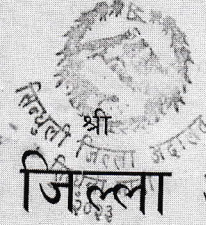 सिन्धुली जिल्ला अदालत
श्री
जिल्ला
२०१३